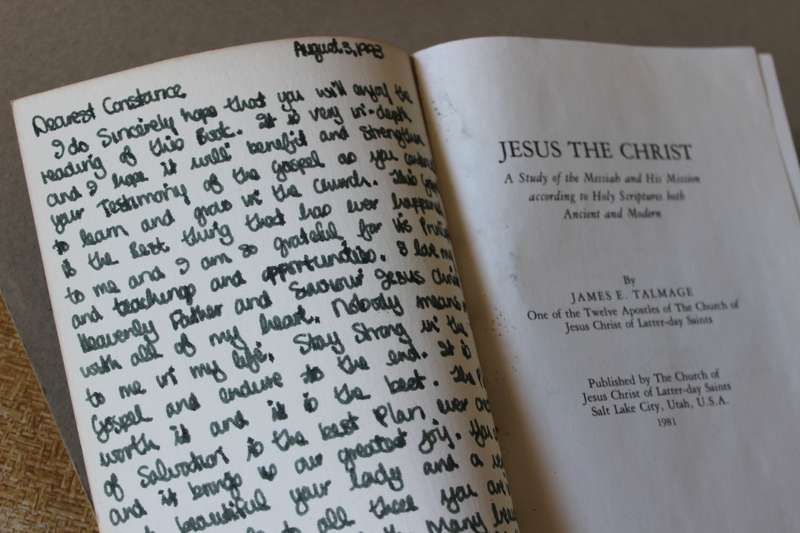 August 3, 1993
Dearest Constance
I do Sincerely hope that you will enjoy the
reading of this Book. It is very in-depth
and I hope it will benefit and strengthen
your Testimony of the Gospel as you
to learn and grow in the Church. This
is the Best thing that has ever happened
to me and I am so grateful for its
and teachings and opportunities. I love my
Heavenly Father and Saviour Jesus Christ
with all of my heart. Nobody means
to me in my life. Stay Strong in the
Gospel and endure to the end. It is
worth it and it is the best. The
of Salvation is the best Plan ever
and it brings us our greatest joy. You
beautiful young lady and a
to all those you
Many
JESUS THE CHRIST
A Study of the Messiah and His Mission
according to Holy Scriptures both
Ancient and Modern
By
JAMES E. TALMAGE
One of the Twelve Apostles of The Church of
Jesus Christ of Latter-day Saints
Published by The Church of
Jesus Christ of Latter-day Saints
Salt Lake City, Utah, U.S.A.
1981